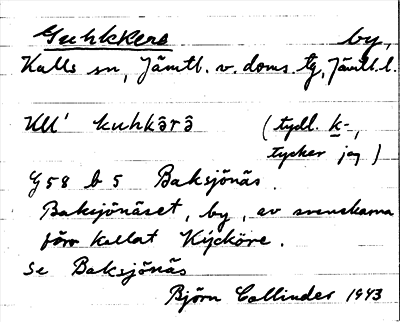 Guhkkera by,
Kalls sn, Jämtl. v. doms. tg, Jämtl. l.
KU' kuhkə̂rə̂ (tydl. k-,
tycker jag)
G 58 b 5 Baksjönäs.
Baksjönäset, by, av svenskarna
förr kallat Kycköre.
Se Baksjönäs
Björn Collinder 1943